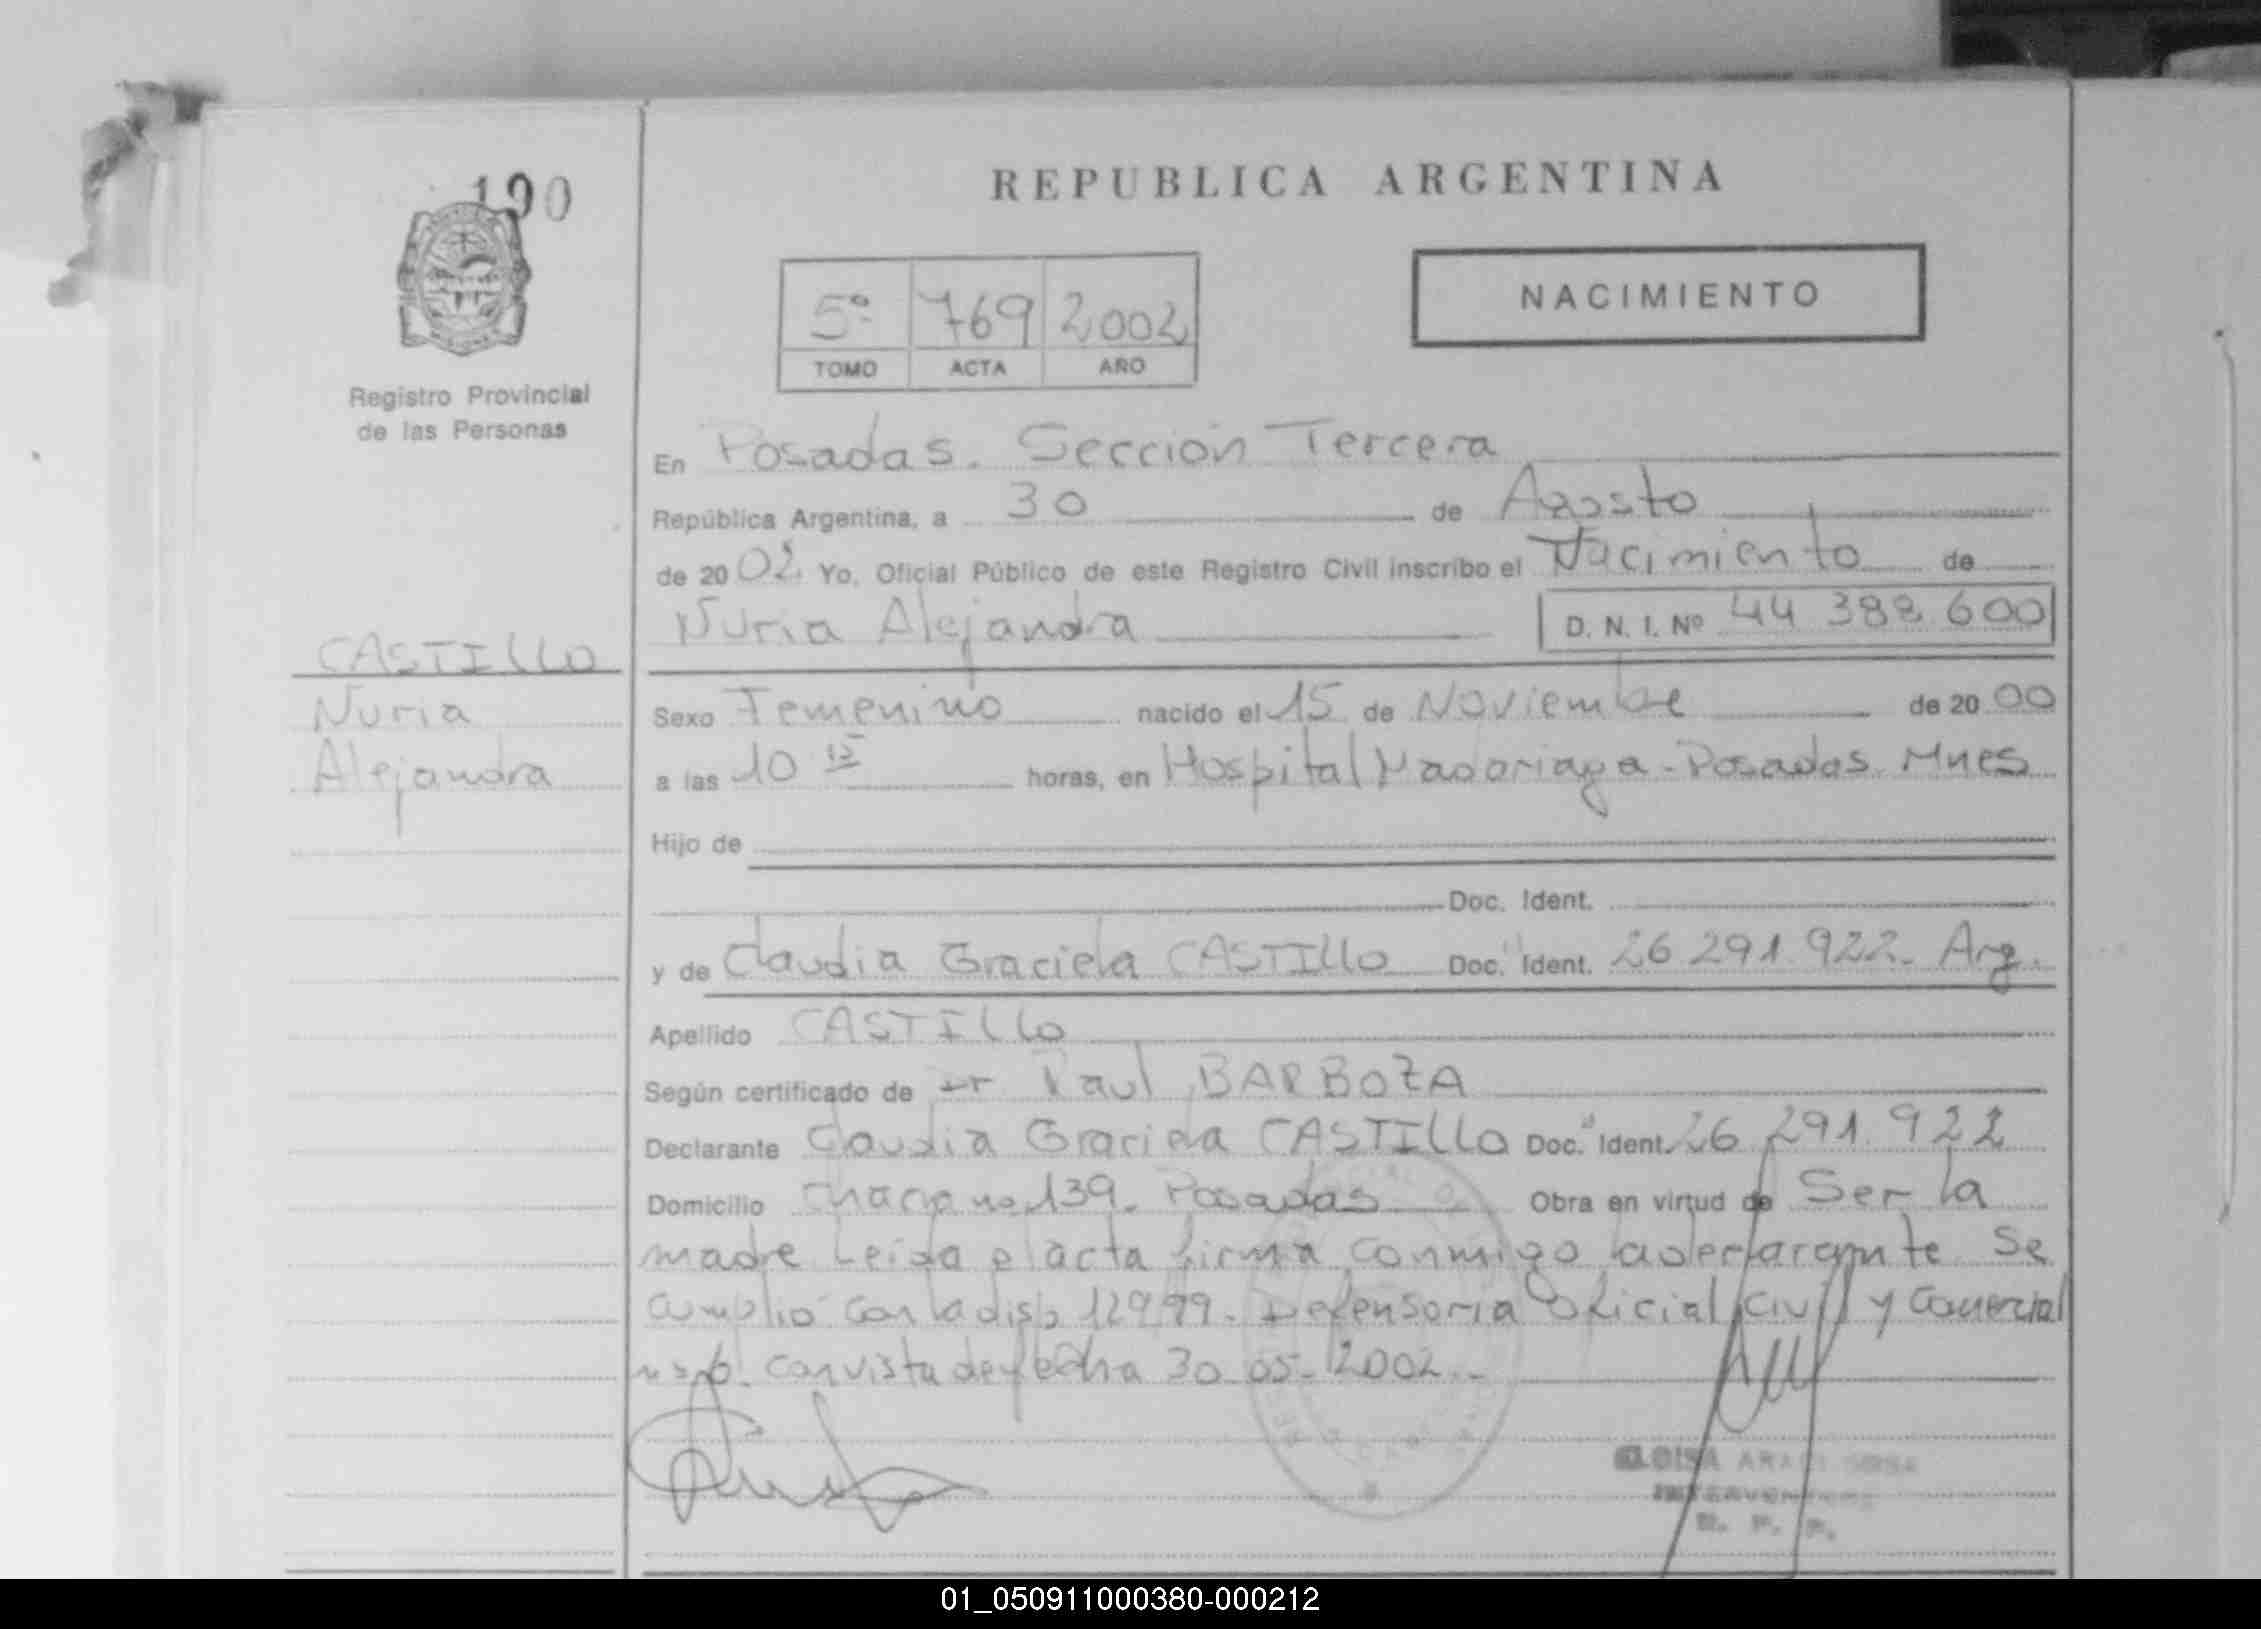 190
REPUBLICA ARGENTINA
NACIMIENTO
5º 769 2002
TOMO ACTA AÑO
Registro Provincial
de las Personas
En Posadas. Sección Tercera
República Argentina, a 30 de Agosto
de 20 02 Yo, Oficial Público de este Registro Civil inscribo el Nacimiento de
Nuria Alejandra D. N. I. Nº 44 388 600
CASTILLO
Nuria
Alejandra
Sexo Femenino nacido el 15 de Noviembre de 20 00
a las 10 15 horas, en Hospital Madariaga - Posadas Mnes
Hijo de
Doc. Ident.
y de Claudia Graciela CASTILLO Doc. Ident. 26 291.922. Arg.
Apellido CASTILLO
Según certificado de Dr Raul BARBOZA
Declarante Claudia Graciela CASTILLO Doc. Ident. 26 291.922
Domicilio 139. Posadas Obra en virtud de Ser la
madre Leida el acta firma conmigo la declarante Se
cumplio con la disp 129/99. Defensoria Oficial Civil y Comercial
nº 6. con vista de fecha 30-05-2002.-
ARACI SOSA
INTERVENTORA
R. P. P.
01_050911000380-000212